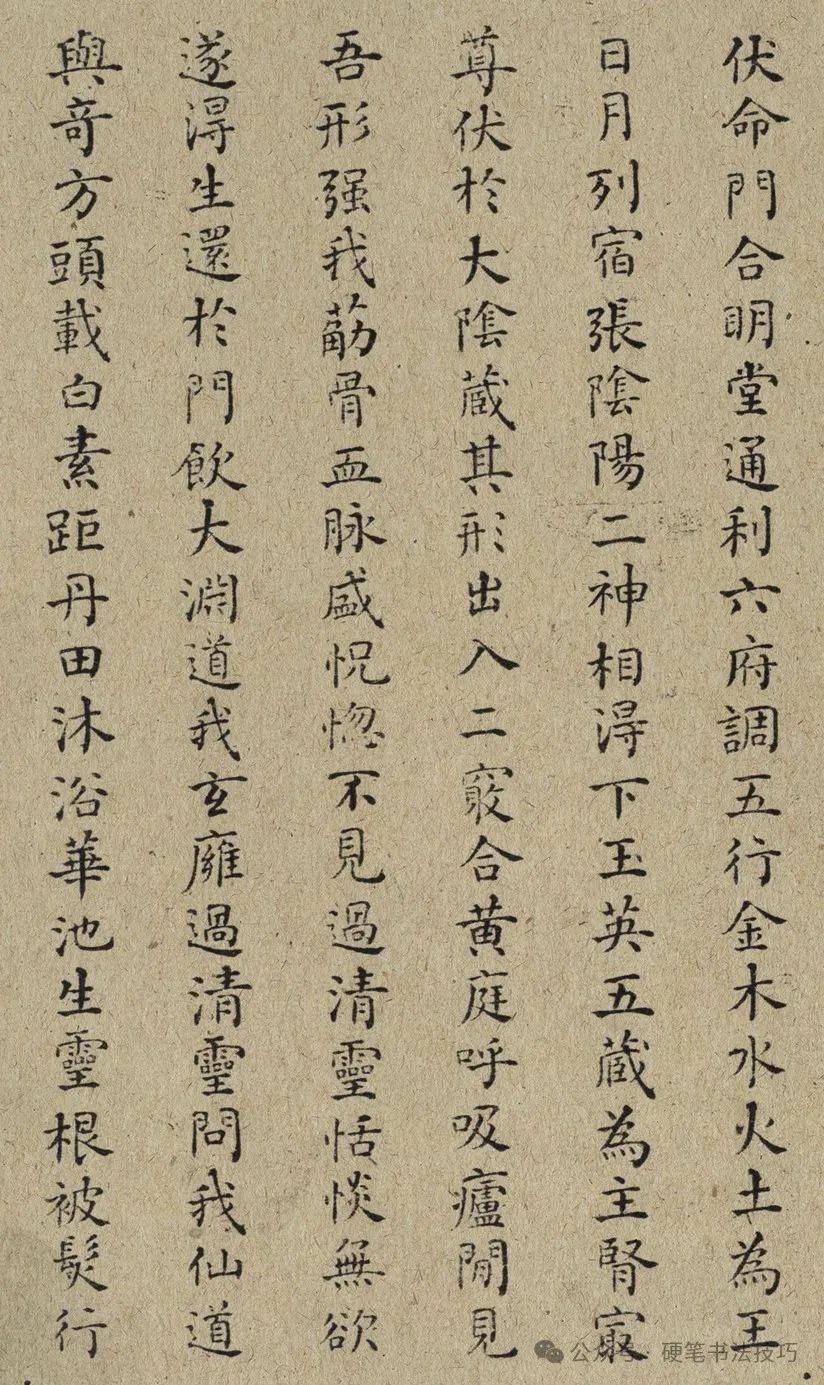 伏命門合明堂通利六府調五行金木水火土為王
日月列宿張陰陽二神相淂下玉英五藏為主腎㝡
尊伏於大陰藏其形出入二竅合黃庭呼吸廬間見
吾形强我荕骨血脉盛怳惚不見過清靈恬惔無欲
遂淂生還於門飲大淵道我玄廱過清靈問我仙道
與奇方頭載白素距丹田沐浴華池生靈根被髮行
公众号 · 硬笔书法技巧